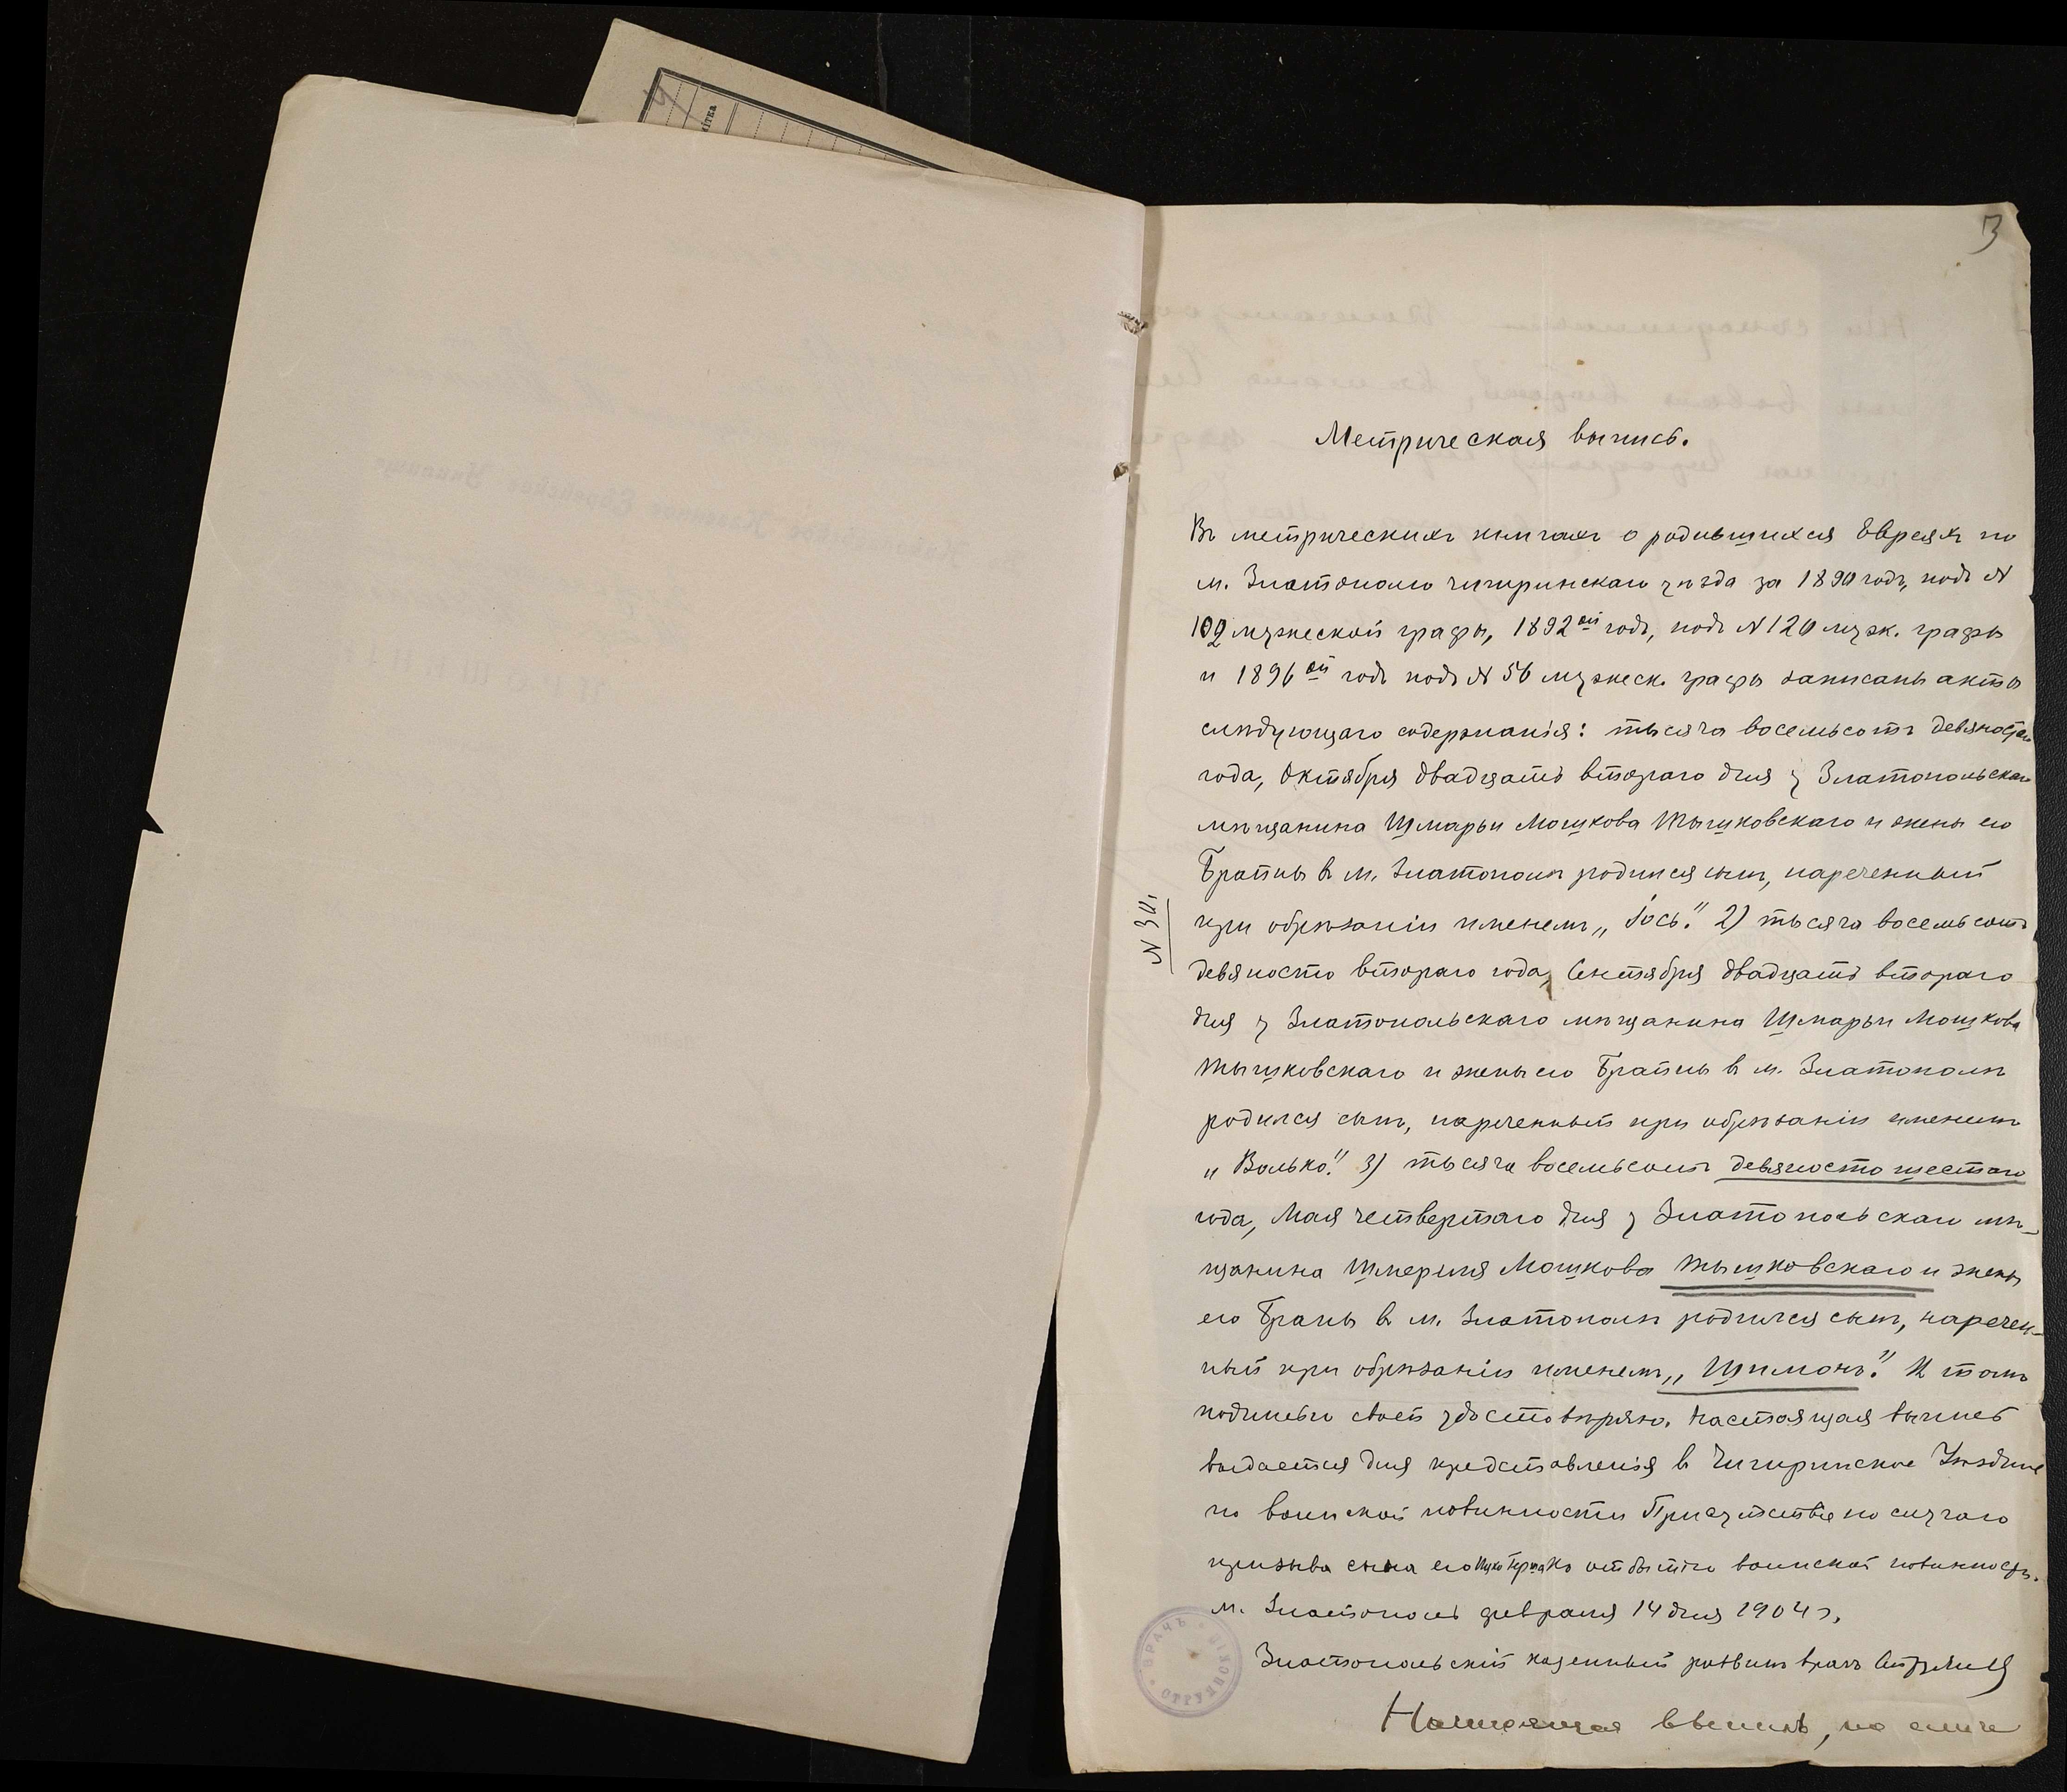 3
Метрическая выпись.
Въ метрическихъ книгахъ о родившихся Евреяхъ по
м. Златополю Чигиринскаго уѣзда за 1890 годъ, подъ N
102 мужеской графы, 1892ой годъ, подъ N 120 муж. графы
и 1896ой годъ подъ N 56 мужеск. графы записаны акты
слѣдующаго содержанія: тысяча восемьсотъ девяностаго
года, Октября двадцать втораго дня у Златопольскаго
мѣщанина Шмарьи Мошкова Тышковскаго и жены его
Брайны въ м. Златополѣ родился сынъ, нареченный
при обрѣзаніи именемъ „Іось." 2) тысяча восемьсотъ
N 30.
девяносто втораго года, Сентября двадцать втораго
дня у Златопольскаго мѣщанина Шмарьи Мошкова
Тышковскаго и жены его Брайны въ м. Златополѣ
родился сынъ, нареченный при обрѣзаніи именемъ
„Волько." 3) тысяча восемьсотъ девяносто шестаго
года, Мая четвертаго дня у Златопольскаго мѣ-
щанина Шмериля Мошкова Тышковскаго и жены
его Браны въ м. Златополѣ родился сынъ, наречен-
ный при обрѣзаніи именемъ „Шимонъ." В томъ
подписью своей удостовѣряю. Настоящая выпись
выдается для представленія в Чигиринское Уѣздное
по воинской повинности Присутствіе по случаю
призыва сына его къ отбытію воинской повинности.
м. Златополь февраля 14 дня 1904 г.
Златопольскій казенный раввинъ врачъ
ВРАЧЪ
Настоящая выпись, по